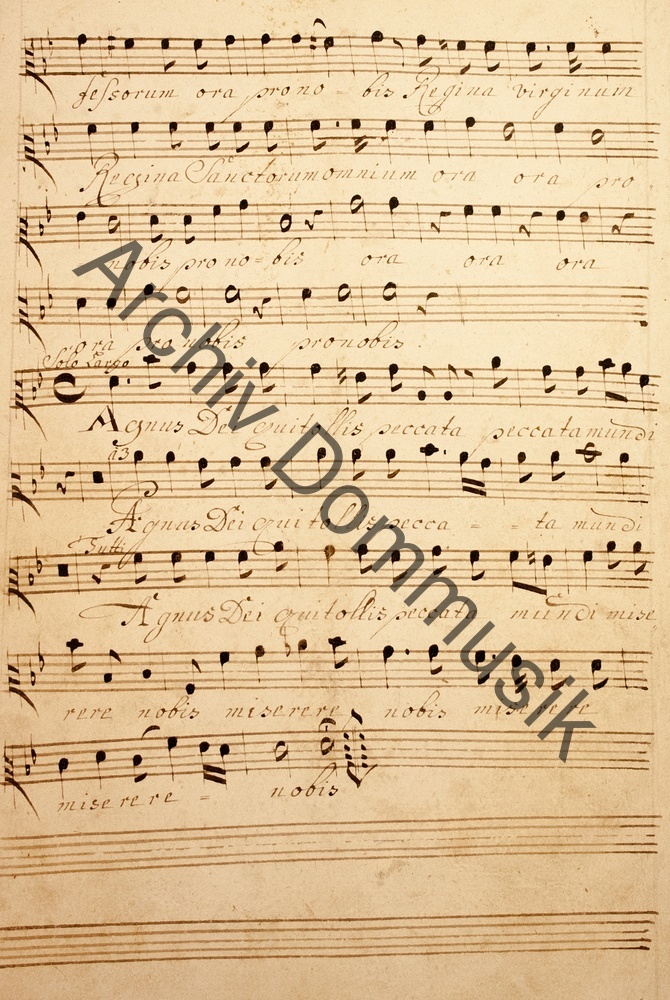 fessorum ora pro no - bis Regina virginum
Regina Sanctorum omnium ora ora pro
nobis pro no - bis ora ora ora
ora pro nobis pro nobis.
Solo Largo
Agnus Dei qui tollis peccata peccata mundi
a3
Agnus Dei qui tollis pecca - - ta mundi
Tutti
Agnus Dei qui tollis peccata mundi mise
rere nobis miserere nobis miserere
miserere - nobis
Archiv Dommusik